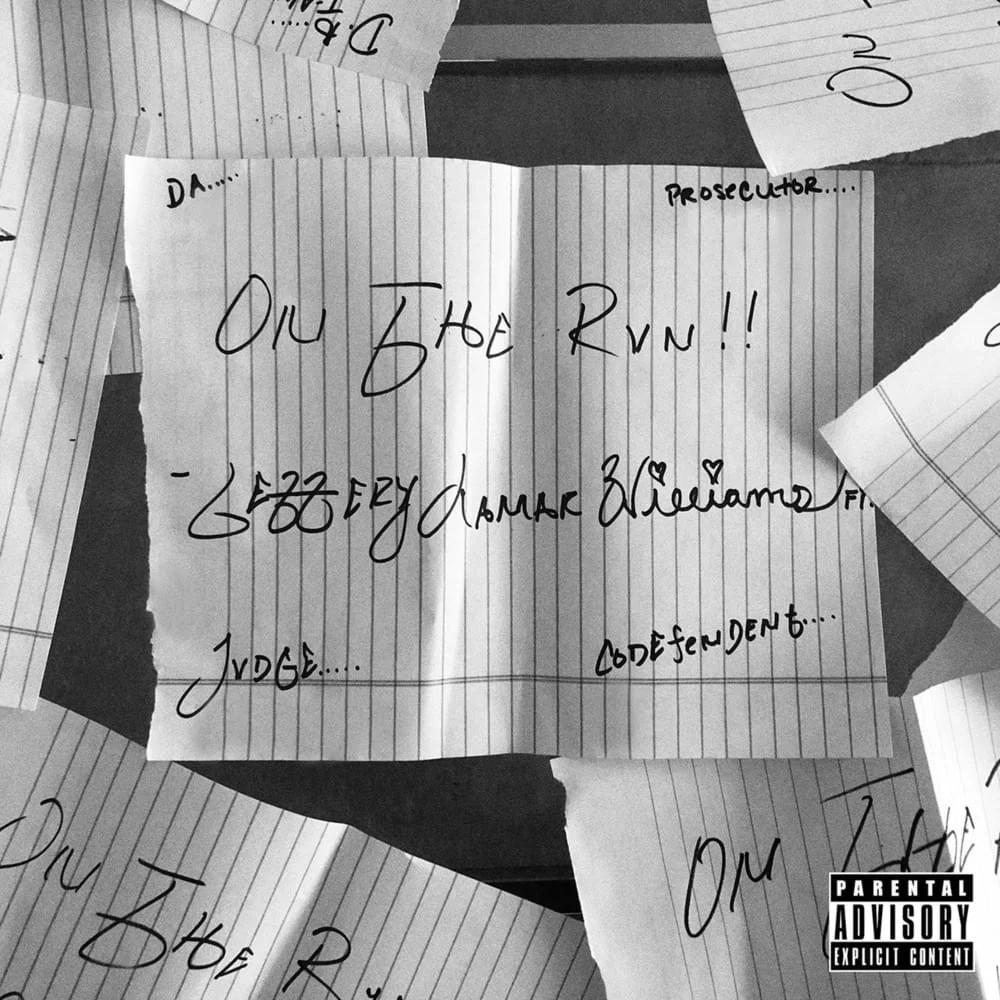 DA.....
PROSECUTOR....
ON THE RVN!!
- JEFFERY LAMAR Williams
JVDGE.....
CODEfENDENt....
ON THE
ON THE R
PARENTAL
ADVISORY
EXPLICIT CONTENT